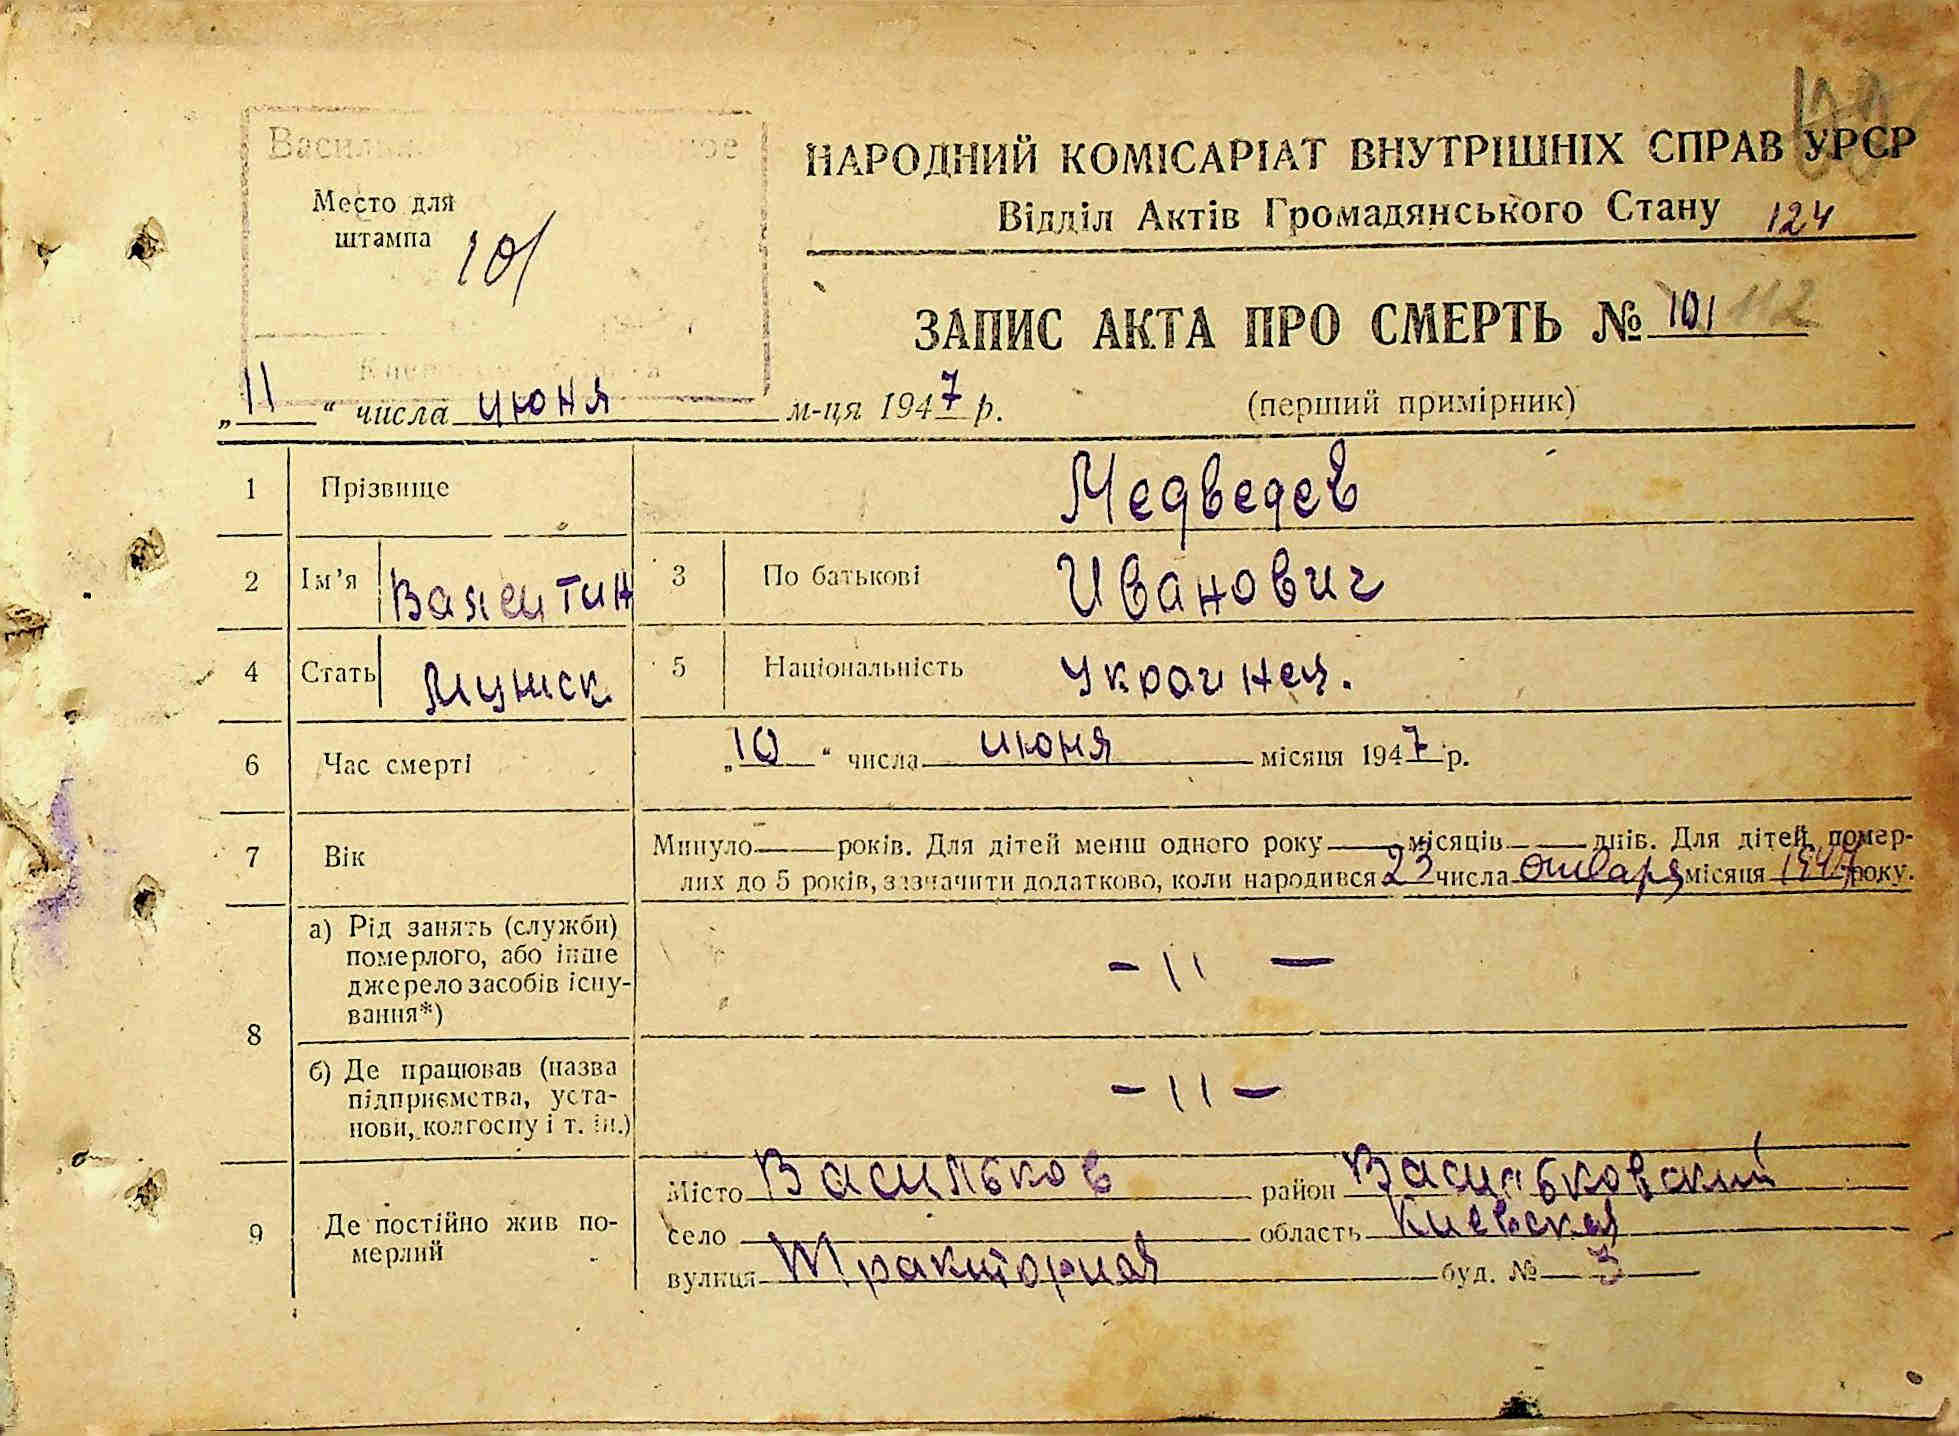 Место для
штампа
101
НАРОДНИЙ КОМІСАРІАТ ВНУТРІШНІХ СПРАВ УРСР
Відділ Актів Громадянського Стану 124
ЗАПИС АКТА ПРО СМЕРТЬ № 101 112
„11“ числа июня м-ця 1947 р. (перший примірник)
1 Прізвище Медведев
2 Ім’я Валентин 3 По батькові Иванович
4 Стать мужск 5 Національність украинец.
6 Час смерті „10“ числа июня місяця 1947 р.
7 Вік Минуло — років. Для дітей менш одного року — місяців — днів. Для дітей, помер-
лих до 5 років, зазначити додатково, коли народився 23 числа января місяця 1947 року.
8 а) Рід занять (служби)
померлого, або інше
джерело засобів існу-
вання*) – 11 –
б) Де працював (назва
підприємства, уста-
нови, колгоспу і т. ін.) – 11 –
9 Де постійно жив по-
мерлий
Місто Васильков район Васильковский
село область Киевская
вулиця Тракторная буд. № 3